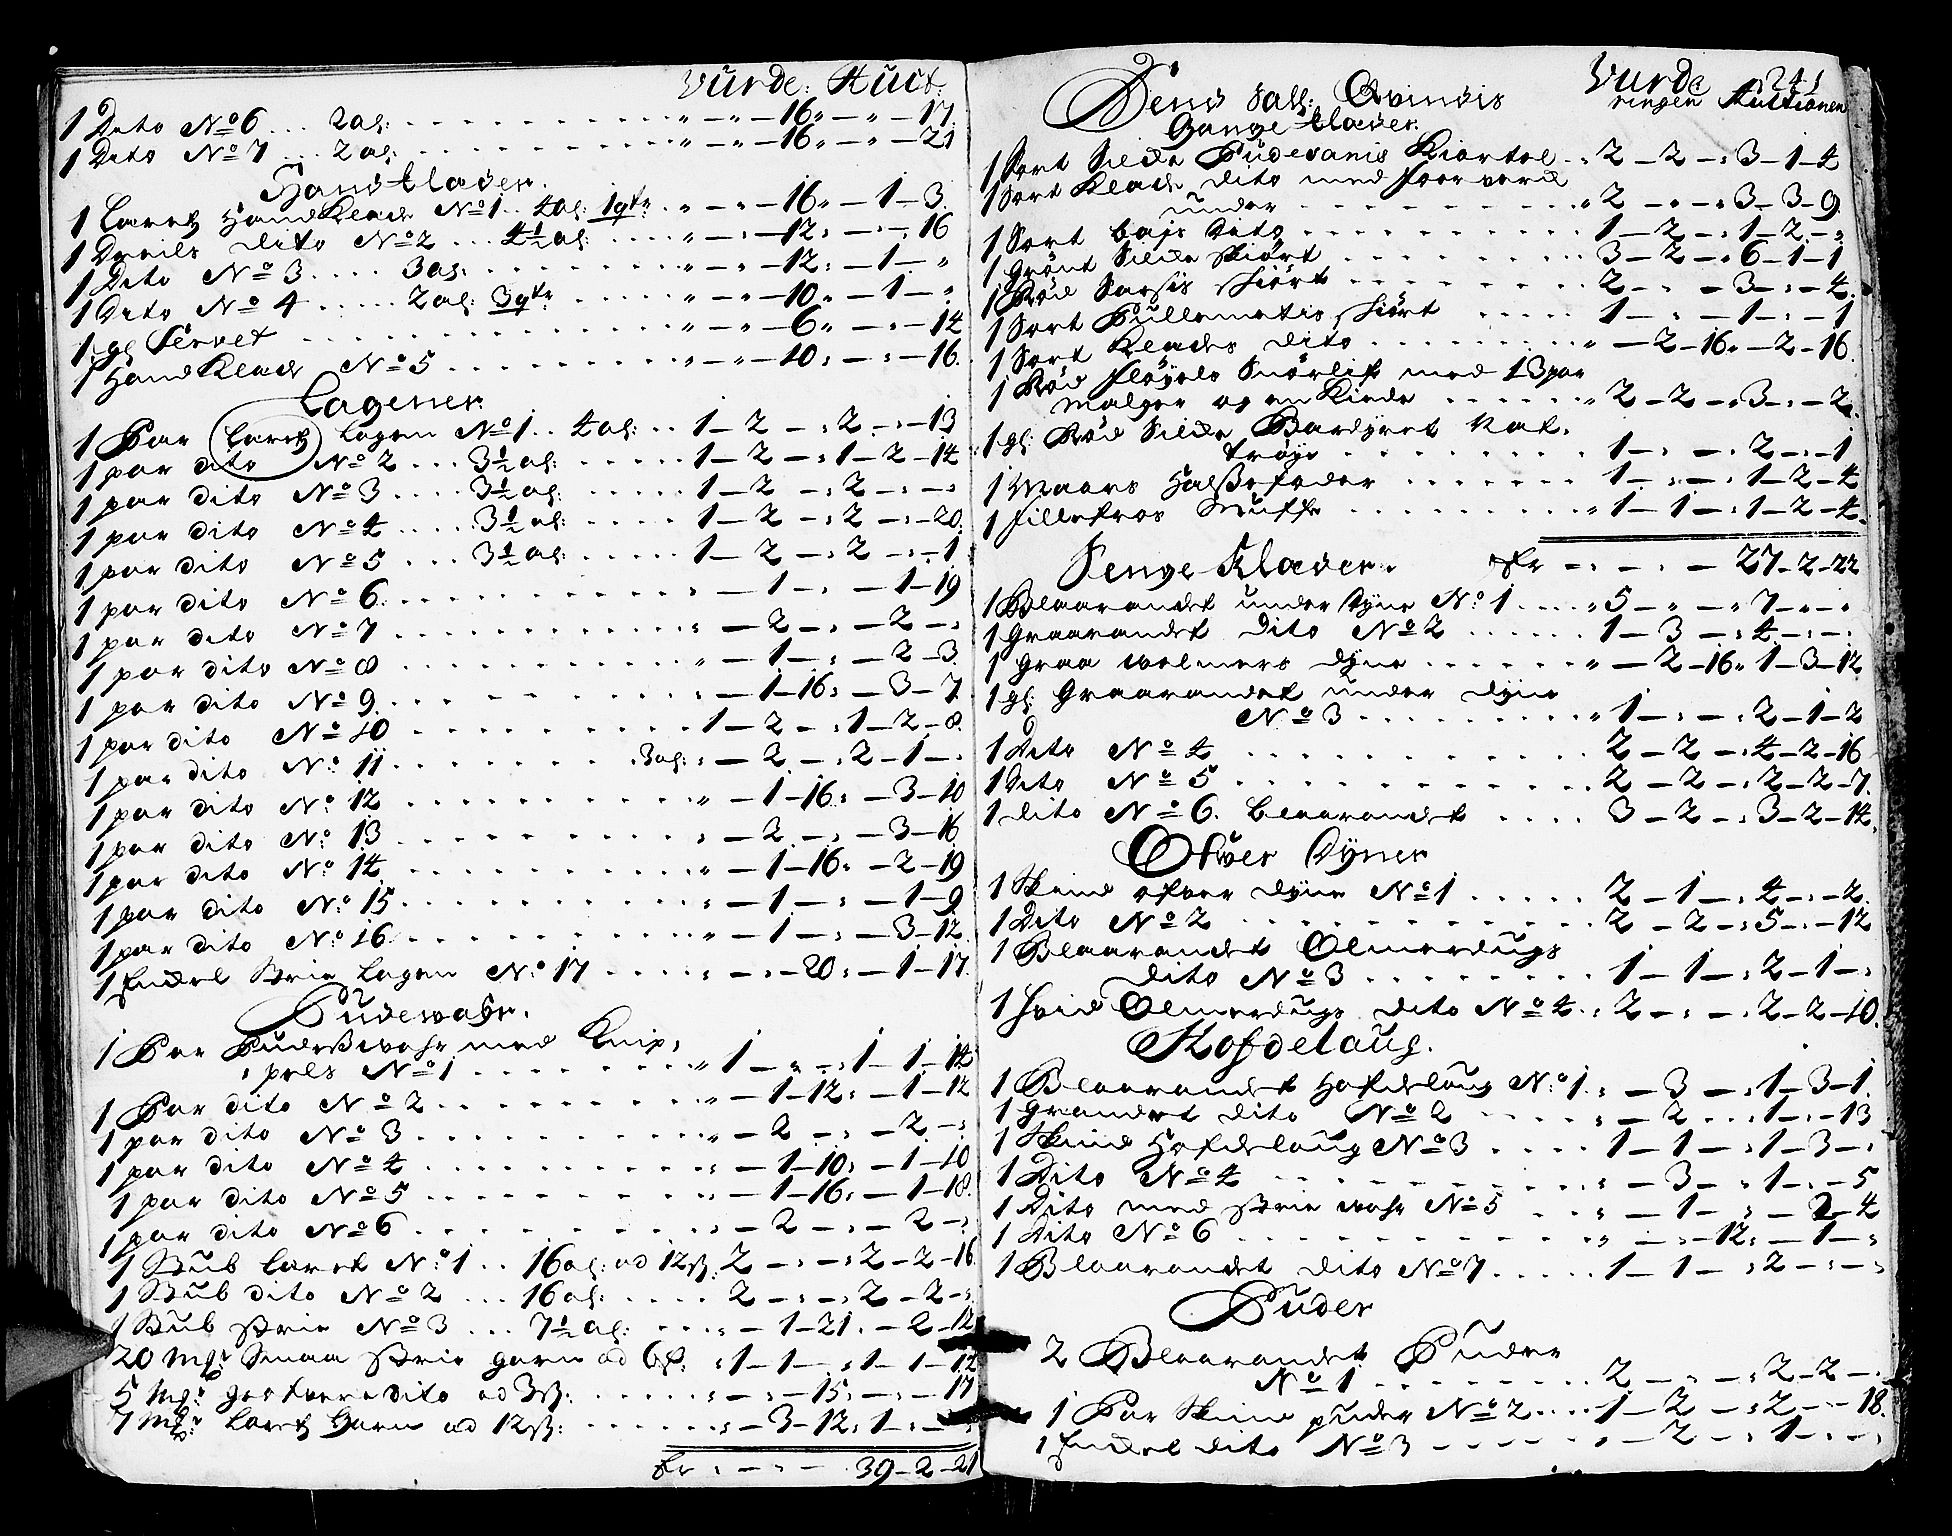 Vurde: Auct:
1 Dito No 6 ... 2 al: . . . „ – „ – 16 „ – „ – 17
1 Dito No 7 ... 2 al: . . . „ – „ – 16 „ – „ – 21
Handklæder.
1 Lærret Handklæde No 1 .. 4 al: 1 qtr „ – „ – 16 „ – 1 – 3
1 Dreils dito No 2 ... 4½ al: . . . „ – „ – 12 : – „ – 16
1 Dito No 3 .... 3 al: . . . „ – „ – 12 : – 1 – „
1 Dito No 4 ..... 2 al: 3 qtr „ – „ – 10 „ – 1 – „
1 gl Servet . . . „ – „ – 6 „ – „ – 14
1 Handklæde No 5 . . . „ – „ – 10 : – : – 16
Lagener
1 Par Lærret Lagen No 1 .. 4 al: .. 1 – 2 – : 2 – : – 13
1 par dito No 2 ... 3½ al: . . . 1 – 2 – : 1 – 2 – 14
1 par dito No 3 .... 3½ al: . . . 1 – 2 – : 2 – : – :
1 par dito No 4 .... 3½ al: . . . 1 – 2 – : 2 – : – 20
1 par dito No 5 ... 3½ al: . . . 1 – 2 – : 2 – : – 1
1 par dito No 6 . . . – 1 – : – 1 – 19
1 par dito No 7 . . . : – 2 – : – 2 – :
1 par dito No 8 . . . „ – 1 – : – 2 – 3
1 par dito No 9 . . . – 1 – 16 : – 3 – 7
1 par dito No 10 . . . 1 – 2 – : 1 – 2 – 8
1 par dito No 11 . . . 3 al: : – 2 – : 2 – 1 – :
1 par dito No 12 . . . „ – 1 – 16 : – 3 – 10
1 par dito No 13 . . . : – 2 – : – 3 – 16
1 par dito No 14 . . . : – 1 – 16 : – 2 – 19
1 par dito No 15 . . . : – 1 – : – 1 – 9
1 par dito No 16 . . . „ – 1 – : – 3 – 12
1 Enckel Strie Lagen No 17 . . . : – : – 20 : – 1 – 17
Pudewahr.
1 Par Pudeswahr med Knip,
pels No 1 . . . „ 1 – „ – : 1 – 1 – 14
1 Par dito No 2 . . . „ – 1 – 12 : – 1 – 12
1 par dito No 3 . . . „ – 2 – : – 2 – :
1 par dito No 4 . . . : – 1 – 10 : – 1 – 10
1 par dito No 5 . . . : – 1 – 16 : – 1 – 18
1 par dito No 6 . . . : – 2 – : – 2 – :
1 Stub Lærret No 1 .. 16 al: ad 12 s: 2 – : – : 2 – 2 – 16
1 Stub dito No 2 ... 16 al: . . . 2 – : – : 2 – 2 – :
1 Stub strie No 3 ... 7½ al: . . . : – 1 – 21 : – 2 – 12
20 Mk: Smaa strie garn ad 6 s: : 1 – 1 – : 1 – 1 – 12
5 Mk: grovere dito ad 3 s: . . . : – : – 15 : – : – 17
7 Mk: Lærret Garn ad 12 s: . . . : – 3 – 12 : 1 –
Lr : – – – 39 – 2 – 21
Dend Sall: Qvindis
Gange Klæder.
Vurderingen
241
Auctionen
1 Sort Silke Pudesanis Kiortel .. 2 – 2 – : 3 – 1 – 4
1 Sort Klæde dito med foerverk
under . . . „ 2 – „ – : 3 – 3 – 9
1 Sort bajs dito . . . 1 – 2 – : 1 – 2 – :
1 Grønt Silke Skiørt . . . 3 – 2 – : 6 – 1 – 1
1 Rød Sarsis skiørt . . . 2 – – 3 – : – 4
1 Sort Pullemetis skiørt . . . 1 – : – 1 – : – 1
1 Sort Klædes dito . . . „ – 2 – 16 „ – 2 – 16
1 Rød fløyels Snørlif med 13 par
Malger og en Kiede . . . „ 2 – 2 – : 3 – : – 2
1 gl: Rød Silke Bardyret Nat:
trøye . . . 1 – : – 2 – : – 1
1 Maars Halssefoder . . . 1 – : – : 1 – 2 – 4
1 fillefros Muffe . . . 1 – 1 – : 1 – 2 – 4
Lr – : – : – 27 – 2 – 22
Senge Klæder.
1 Blaarandet under dyne No 1 .... „ 5 – „ – „ 7 – „ – „
1 Graarandet dito No 2 . . . 1 – 3 – : 4 – : – :
1 Graa wolmers dyne . . . „ – 2 – 16 „ 1 – 3 – 12
1 gl: Graarandet under dyne
No 3 . . . „ 1 – : – : 2 – 1 – 2
1 Dito No 4 . . . 2 – 2 – : 4 – 2 – 16
1 Dito No 5 . . . 2 – 2 – : 2 – 2 – 7
1 dito No 6. blaarandet . . . 3 – 2 – : 3 – 2 – 14
Ofwer Dyner
1 Skind ofver dyne No 1 . . . 2 – 1 – : 4 – : – 2
1 Dito No 2 . . . 2 – 2 – : 5 – : – 12
1 Blaarandet Olmerdugs
dito No 3 . . . 1 – 1 – : 2 – 1 – :
1 Hvid Olmerdugs dito No 4 .. 2 – : – : 2 – 2 – 10
Hofdelaug.
1 Blaarandet Hofdelaug No 1 : – 3 – : 1 – 3 – 1
1 Grandet dito No 2 . . . : – 2 . . . 1 – : – 13
1 Skind Hofdelaug No 3 . . . 1 – 1 – : 1 – 3 – :
1 Dito No 4 . . . : – 3 – : 1 – : – 5
1 Dito med strie wahr No 5 . . . : – 1 – : – 2 – 4
1 Dito No 6 . . . „ – : – 12 : – 1 – :
1 Blaarandet dito No 7 . . . 1 – 1 – : 2 – : – :
Puder
2 Blaarandet Puder
No 1 . . . 2 – : – : 2 – 2 – :
1 Par Skind puder No 2 .... 1 – 2 – : 2 – : – 18
1 Enckel dito No 3 . . . : – 2 – : 1 – : – :